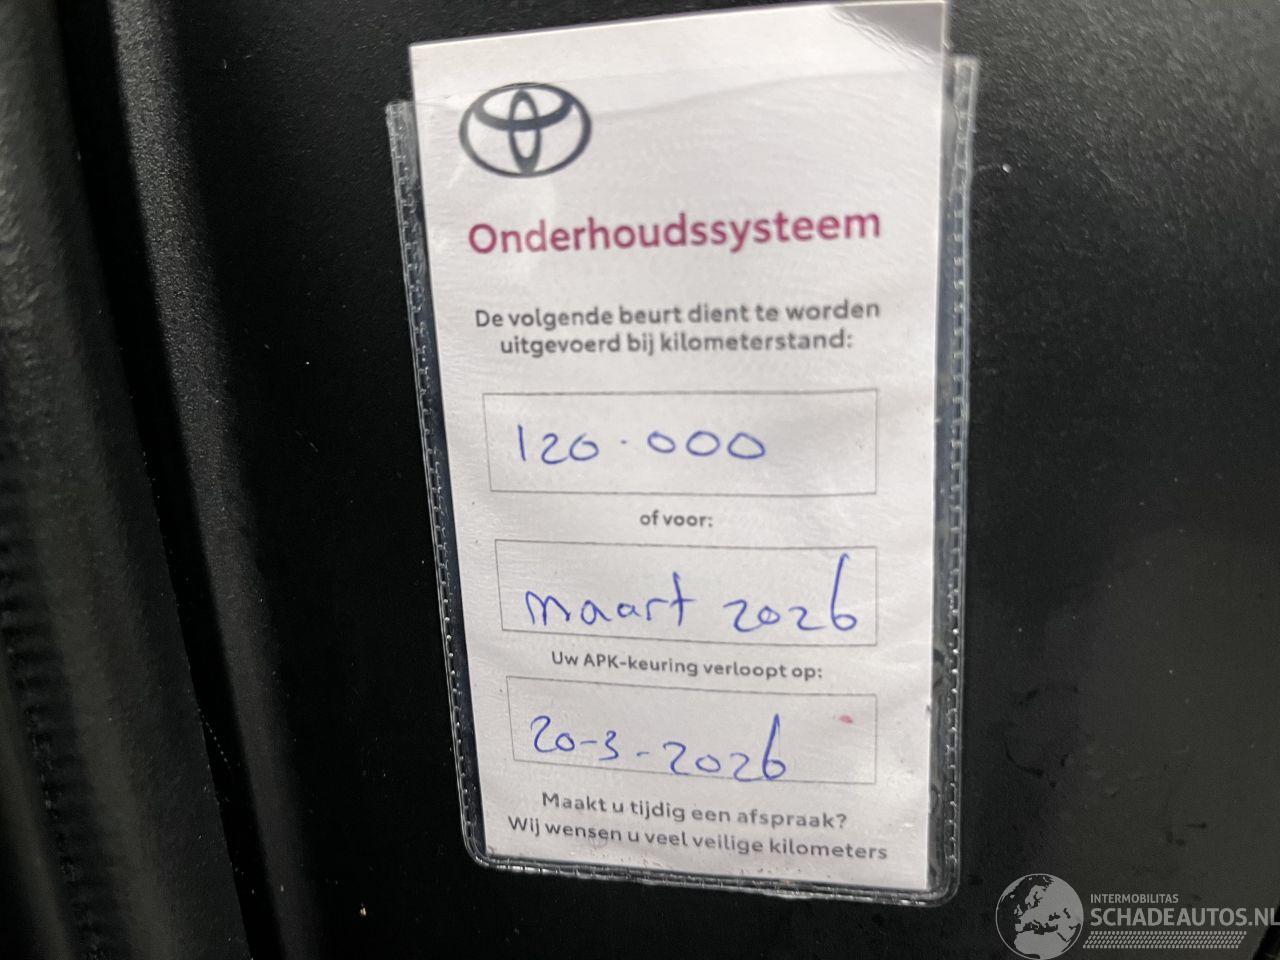 Onderhoudssysteem
De volgende beurt dient te worden
uitgevoerd bij kilometerstand:
120.000
of voor:
maart 2026
Uw APK-keuring verloopt op:
20-3-2026
Maakt u tijdig een afspraak?
Wij wensen u veel veilige kilometers
INTERMOBILITAS
SCHADEAUTOS.NL